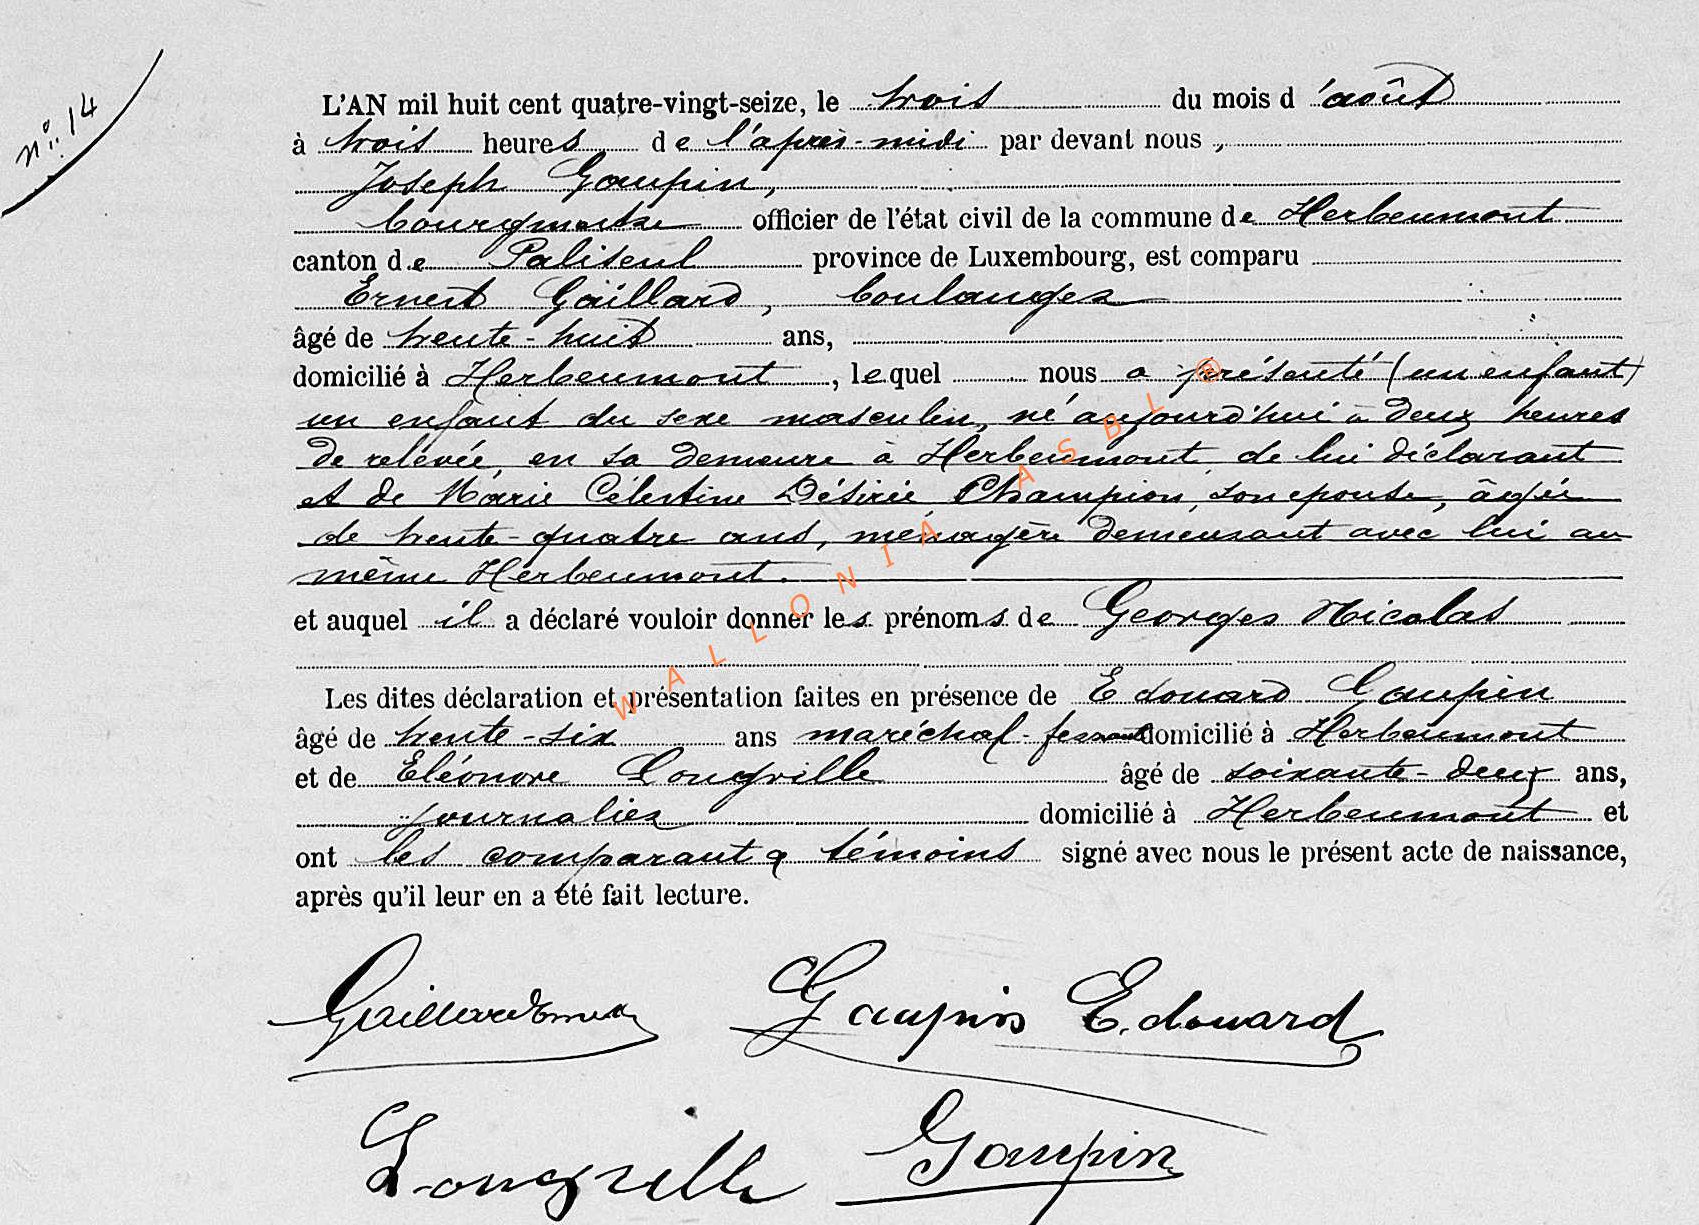 n°: 14
L'AN mil huit cent quatre-vingt-seize, le trois du mois d'août
à trois heures de l'après-midi par devant nous,
Joseph Gaupin,
bourgmestre officier de l'état civil de la commune de Herbeumont
canton de Paliseul province de Luxembourg, est comparu
Ernest Gaillard, boulanger
âgé de trente-huit ans,
domicilié à Herbeumont, lequel nous a présenté (un enfant)
un enfant du sexe masculin, né aujourd'hui à deux heures
de relevée, en sa demeure à Herbeumont, de lui déclarant
et de Marie Célestine Désirée Champion, son épouse, âgée
de trente-quatre ans, ménagère demeurant avec lui au
même Herbeumont.
et auquel il a déclaré vouloir donner les prénoms de Georges Nicolas
Les dites déclaration et présentation faites en présence de Edouard Gaupin
âgé de trente-six ans maréchal-ferrant domicilié à Herbeumont
et de Eléonore Longville âgé de soixante-deux ans,
journalier domicilié à Herbeumont et
ont les comparant & témoins signé avec nous le présent acte de naissance,
après qu'il leur en a été fait lecture.
Gaillard Ernest Gaupin Edouard
Longville Gaupin
WALLONIA ASBL ®